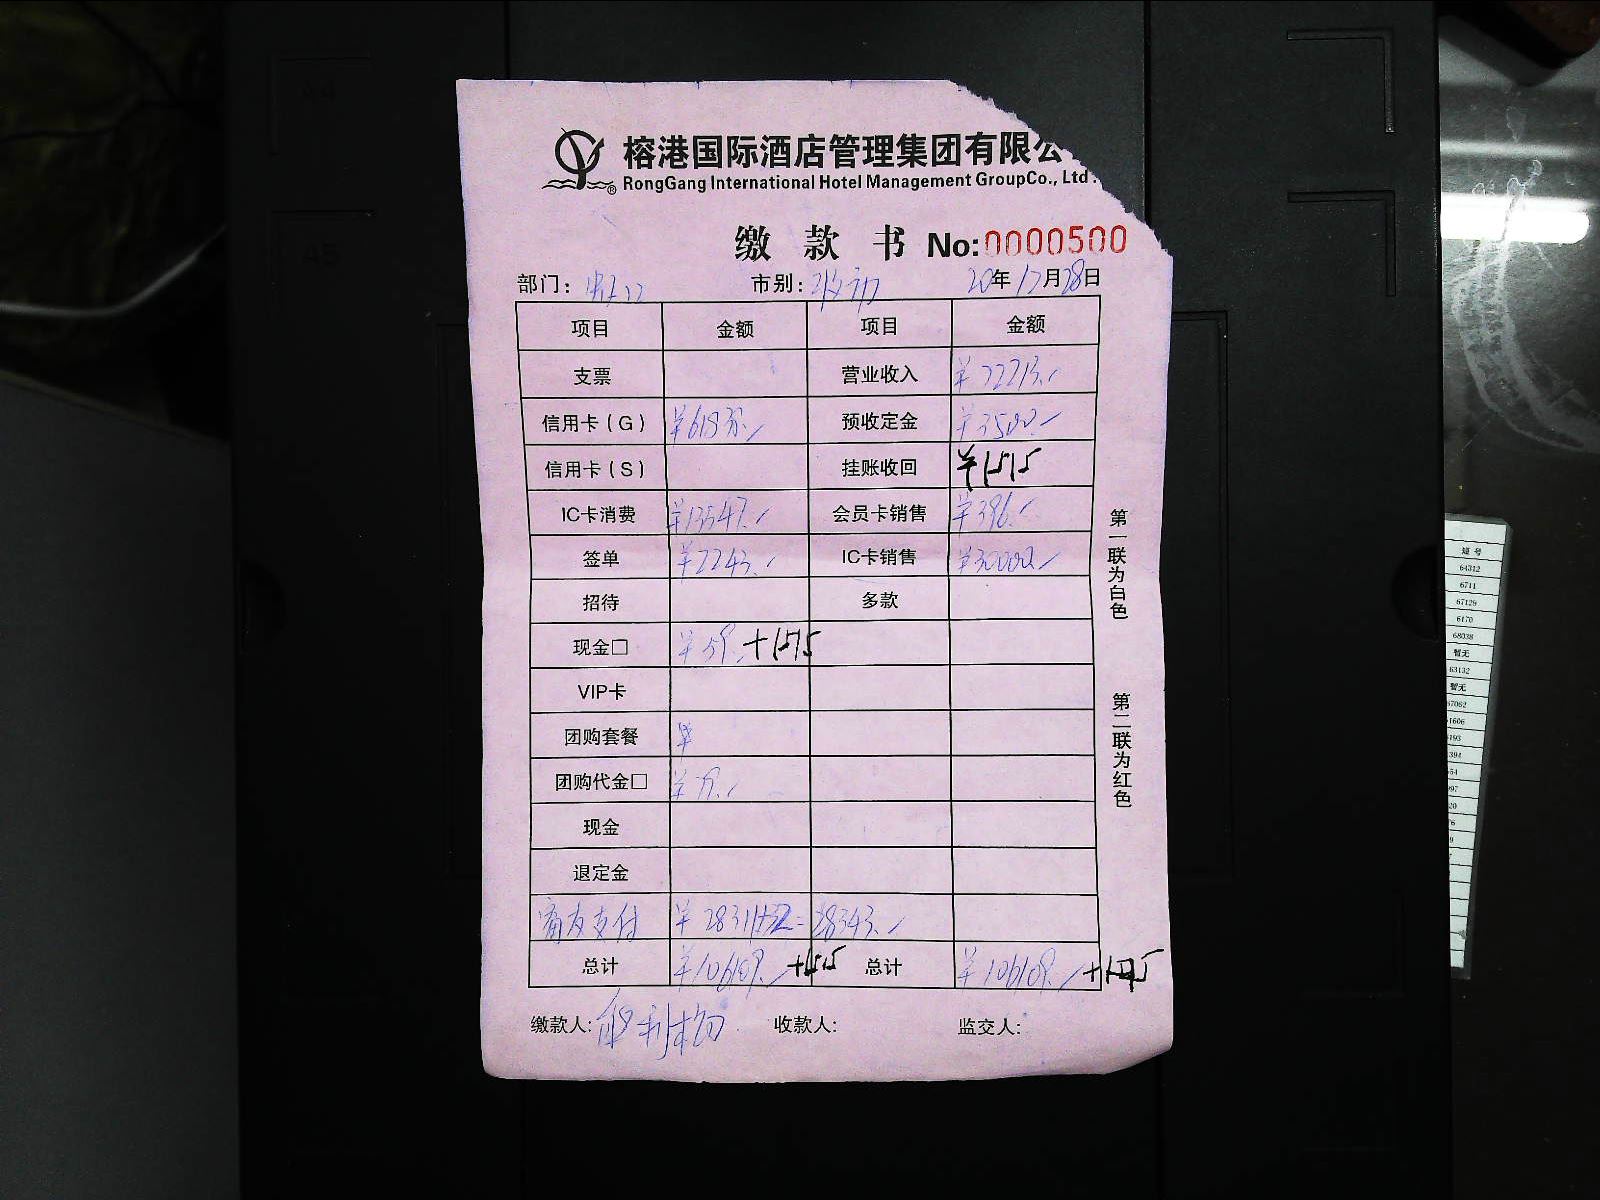 榕港国际酒店管理集团有限公
RongGang International Hotel Management GroupCo., Ltd.
缴款书 No:0000500
部门: 市别: 收市 20年12月28日
项目 金额 项目 金额
支票 营业收入 ¥72213.
信用卡(G) ¥61838. 预收定金 ¥3500.
信用卡(S) 挂账收回 ¥1515
IC卡消费 ¥13547. 会员卡销售 ¥396.
签单 ¥2243. IC卡销售 ¥30000.
招待 多款
现金□ ¥59. +1515
VIP卡
团购套餐 ¥
团购代金□ ¥79.
现金
退定金
支付 ¥28311+32=28343.
总计 ¥106109. +1515 总计 ¥106109. +1515
缴款人: 收款人: 监交人:
第一联为白色
第二联为红色
A4
A5
短号
64312
6711
67129
6170
68038
暂无
63132
暂无
67062